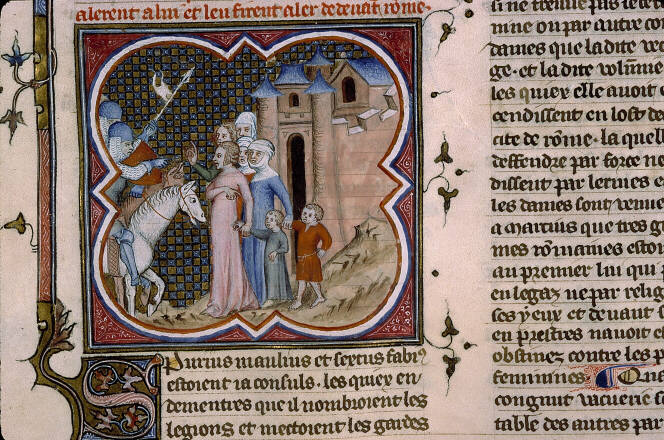 alerent a lui et leu firent aler de deuāt rōme
Purius manlius et sextus fabi⁹
estoient ia consuls. les quiex en
dementres que il nombroient les
legions et mectoient les gardes
si ne treuue pas
mine ou par autre con
dames que ladite ve
ge. et la dite volūm
les quiex elle auoit
cendissent en lost de
cite de rōme. la quell
deffendre par force ne
dissent par lermes e
les dames sont venue
a marcius que tres g
mes rōmaines estoi
au premier lui qui
en legaz ne par relig
ses yeux et deuant
en prestres nauoit e
obstinez contre les p
feminines.
congnut vacuene s
table des autres par